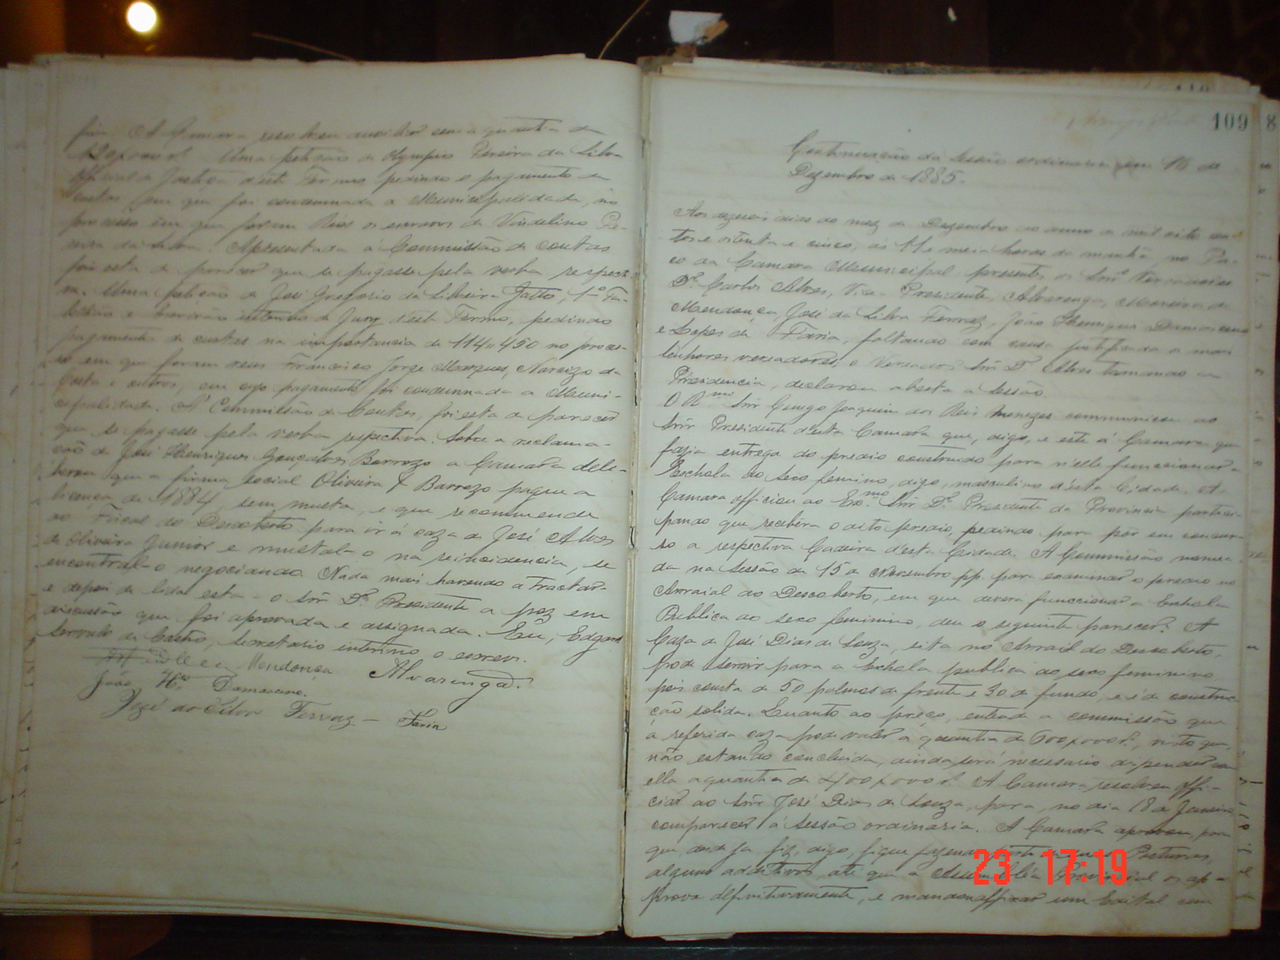 fim. A Camara resolveu auxiliar com a quantia de
120$000 rs. Uma petição de Olympio Pereira da Silva
official de Justiça d'este Termo, pedindo o pagamento de
custas em que foi condemnada a Municipalidade, no
processo em que foram Réos os escravos de Vindelino Pe-
reira da Silva. Apresentada á Commissão de contas
foi esta de parecer que se pagasse pela verba respecti-
va. Uma petição de José Gregorio da Silveira Jatto, 1º Ta-
bellião e escrivão interino do Jury d'este Termo, pedindo
pagamento de custas na importancia de 114$450 no proces-
so em que foram reus Francisco Jorge Marques, Narcizo da
Costa e outros, em cujo pagamento foi condemnada a Muni-
cipalidade. A Commissão de Contas, foi esta de parecer
que se pagasse pela verba respectiva. Sobre a reclama-
ção de José Henriques Gonçalves Barrozo a Camara deli-
berou que a firma social Oliveira & Barrozo pague a
licença de 1884, sem multa, e que recommende
ao Fiscal do Descoberto para ir á caza de José Alves
de Oliveira Junior e multal-o na reincidencia, se
encontral-o negociando. Nada mais havendo a tractar-
e depois de lida esta o Snr. Dr. Presidente a poz em
discussão que foi aprovada e assignada. Eu, Edgard
de Castro, secretario interino o escrevi.
Mendonça Alvarenga.
João Hes Damasceno.
José da Silva Ferraz — Faria
109
Continuação da Sessão ordinaria em 16 de
Dezembro de 1885.
Aos dezeseis dias do mez de Dezembro do anno de mil oito cen-
tos e oitenta e cinco, ás 11 e meia horas da manhã, no Pa-
ço da Camara Municipal presentes os Snrs. Vereadores
Dr. Carlos Alves, Vice-Presidente, Alvarenga, Moreira de
Mendonça, José da Silva Ferraz, João Henriques Damasceno
e Lopes de Faria, faltando com causa justificada os mais
senhores vereadores, o Vereador Snr. Dr. Alves tomando a
Presidencia, declarou aberta a Sessão.
O Rmo. Snr. Conego Joaquim dos Reis Menezes communicou ao
Snr. Presidente d'esta Camara que, digo, e este á Camara que
fazia entrega do predio construido para n'elle funccionar a
Eschola do sexo feminino, digo, masculino d'esta Cidade. A
Camara officiou ao Exmo. Snr. Dr. Presidente da Provincia partici-
pando que recebera o dito predio, pedindo para pôr em concur-
so a respectiva Cadeira d'esta Cidade. A Commissão nomea-
da na Sessão de 15 de Novembro pp. para examinar o predio no
Arraial do Descoberto, em que devera funccionar a Eschola
Publica do sexo feminino, deu o seguinte parecer: A
Caza de José Dias de Souza, sita no Arraial do Descoberto
pode servir para a Eschola publica do sexo feminino
pois consta de 50 palmos de frente e 30 de fundo, e é de construc-
ção solida. Quanto ao preço, entende a commissão que
a referida caza pode valer a quantia de 500$000 rs, visto que
não estando concluida, ainda será necessario despender com
ella a quantia de 400$000 rs. A Camara resolveu offi-
ciar ao Snr. José Dias de Souza, para no dia 18 de Janeiro
comparecer á sessão ordinaria. A Camara aprovou, para
que desde já fiz, digo, fique fazendo parte Posturas,
alguns additivos até que a Assembléa Provincial os ap-
prove definitivamente, e mandou affixar um Edital com
23 17:19